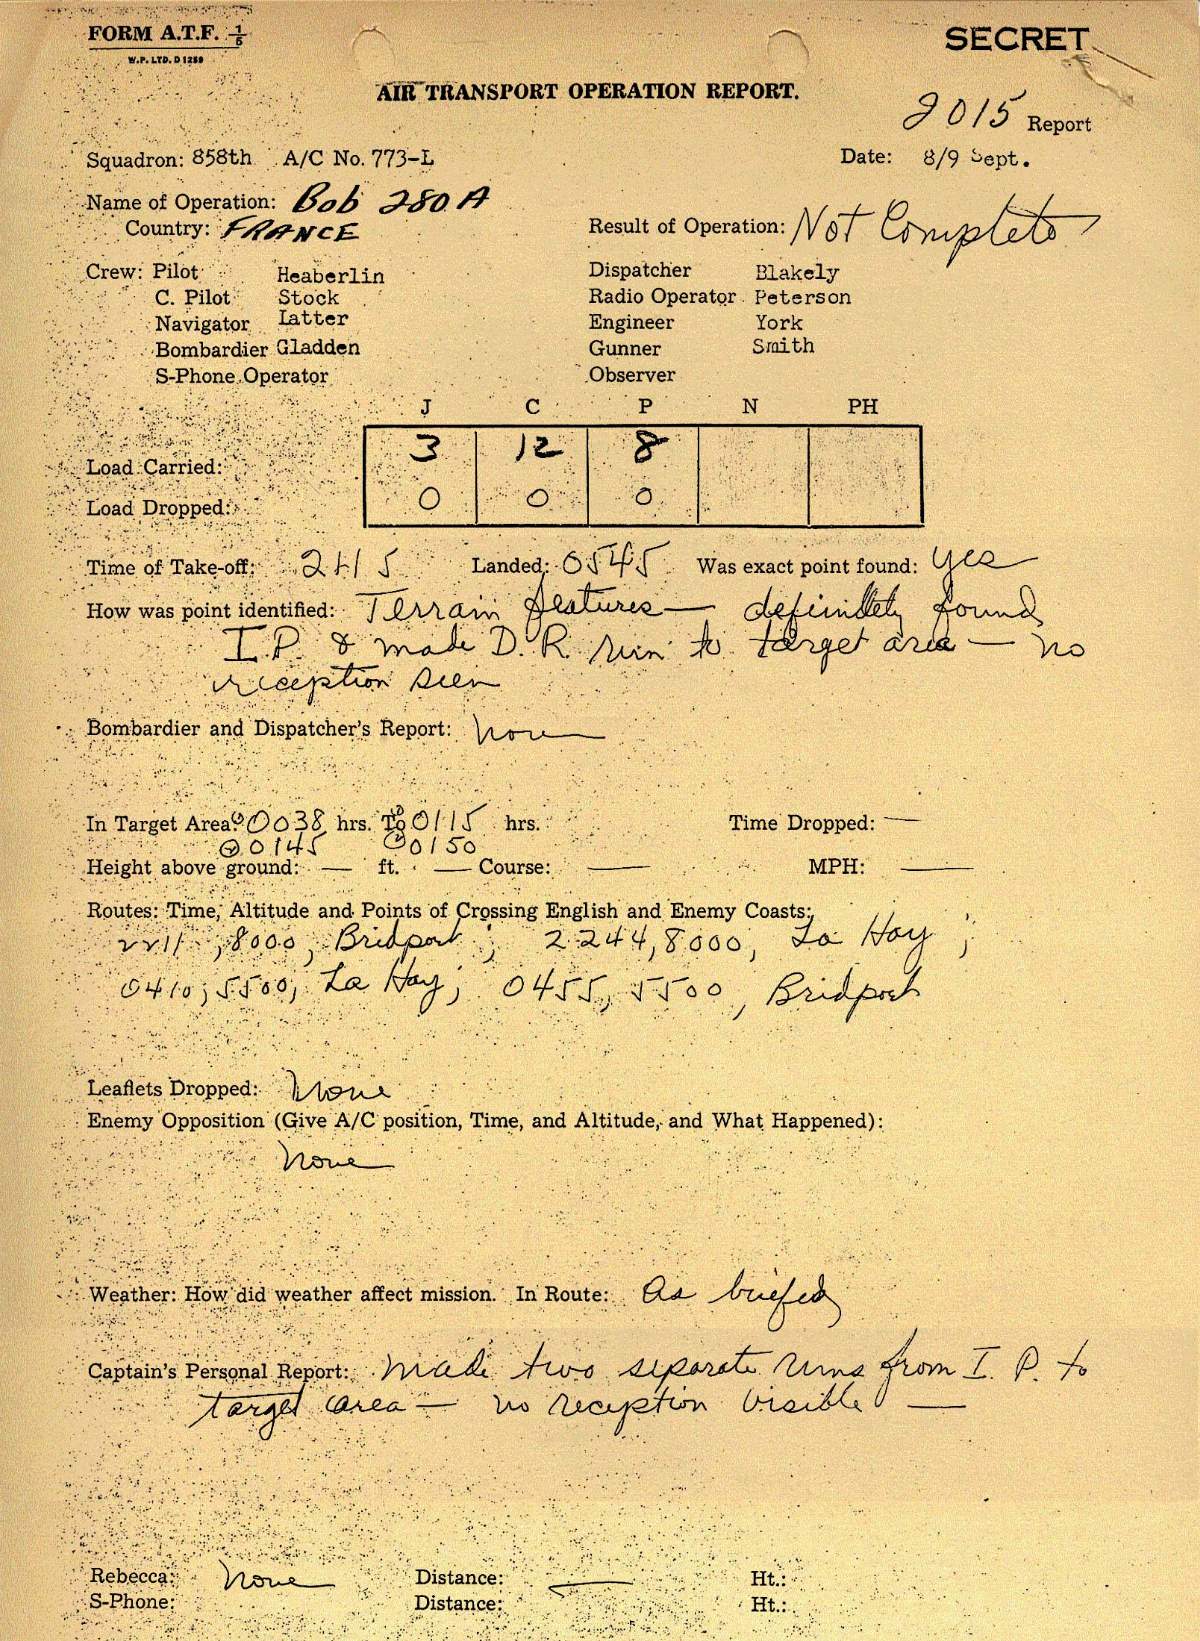 FORM A.T.F. 1/5
SECRET
W.P. LTD. D 1259
AIR TRANSPORT OPERATION REPORT.
2015 Report
Squadron: 858th A/C No. 773-L Date: 8/9 Sept.
Name of Operation: Bob 280A
Country: FRANCE Result of Operation: Not Complete
Crew: Pilot Heaberlin Dispatcher Blakely
C. Pilot Stock Radio Operator Peterson
Navigator Latter Engineer York
Bombardier Gladden Gunner Smith
S-Phone Operator Observer
J C P N PH
Load Carried: 3 12 8
Load Dropped: 0 0 0
Time of Take-off: 2115 Landed: 0545 Was exact point found: Yes
How was point identified: Terrain features — definitely found
I.P. & made D.R. run to target area — no
reception seen
Bombardier and Dispatcher's Report: None
In Target Area: ① 0038 hrs. To ① 0115 hrs. Time Dropped: —
② 0145 ② 0150
Height above ground: — ft. — Course: — MPH: —
Routes: Time, Altitude and Points of Crossing English and Enemy Coasts:
2211, 8000, Bridport; 2244, 8000, La Hay;
0410, 5500, La Hay; 0455, 5500, Bridport
Leaflets Dropped: None
Enemy Opposition (Give A/C position, Time, and Altitude, and What Happened):
None
Weather: How did weather affect mission. In Route: As briefed
Captain's Personal Report: Made two separate runs from I.P. to
target area — no reception visible —
Rebecca: None Distance: — Ht.:
S-Phone: Distance: Ht.: